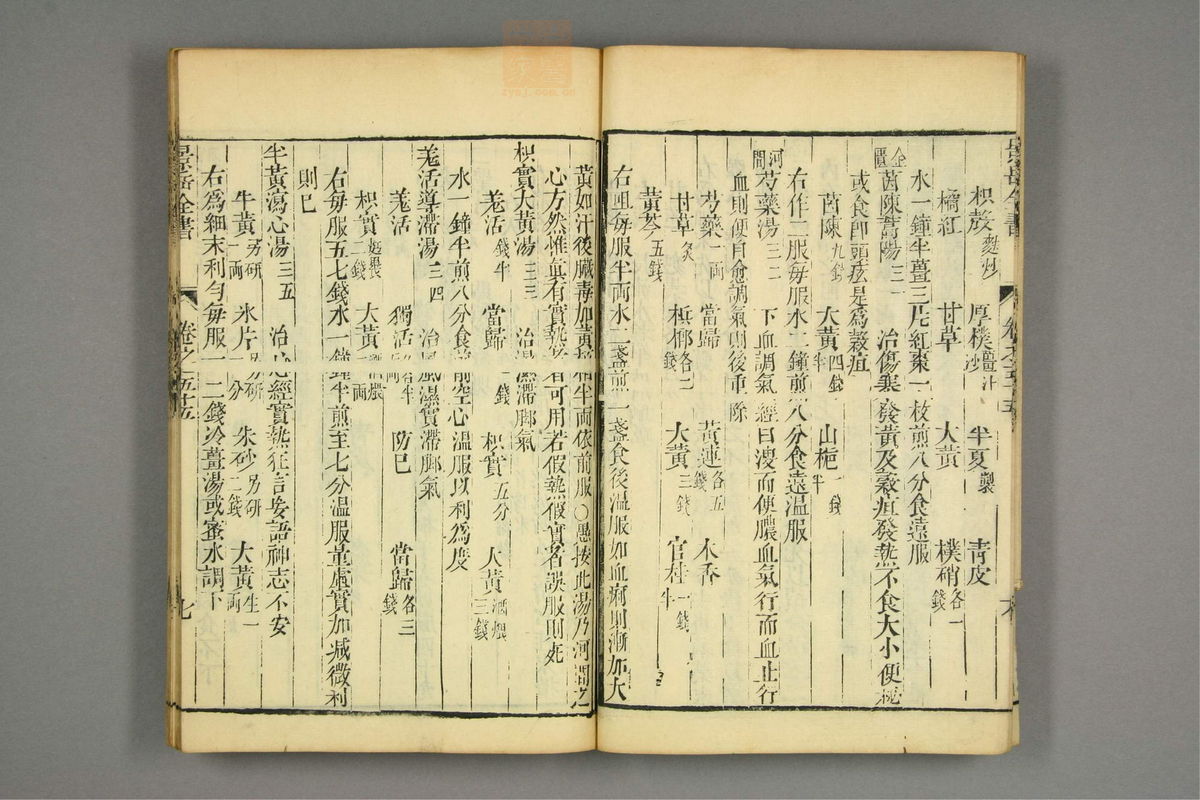 枳殼麩炒 厚樸薑汁炒 半夏製 青皮
橘紅 甘草 大黃 樸硝各一錢
水一鐘半薑三片紅棗一枚煎八分食遠服
金匱茵陳蒿湯三一 治傷寒發黃及穀疸發熱不食大小便秘
或食即頭眩是為穀疸
茵陳九錢 大黃四錢半 山梔一錢半
右作二服每服水二鐘煎八分食遠溫服
河間芍藥湯三二 下血調氣經曰溲而便膿血氣行而血止行
血則便自愈調氣則後重除
芍藥一兩 當歸 黃連各五錢 木香
甘草炙 檳榔各二錢 大黃三錢 官桂一錢半
黃芩五錢
右㕮每服半兩水二盞煎一盞食後溫服如血痢則漸加大
黃如汗後臟毒加黃栢半兩依前服○愚按此湯乃河間之
心方然惟真有實熱者可用若假熱假實者誤服則死
枳實大黃湯三三 治濕滯脚氣
羗活錢半 當歸一錢 枳實五分 大黃酒煨三錢
水一鐘半煎八分食前空心溫服以利為度
羗活導滯湯三四 治風濕實滯脚氣
羗活 獨活各半 防巳 當歸各三錢
枳實麩煨二錢 大黃酒煨一兩
右每服五七錢水一鐘半煎至七分溫服量虛實加减微利
則巳
牛黃瀉心湯三五 治心經實熱狂言妄語神志不安
牛黃另研一兩 氷片另研一分 朱砂另研二錢 大黃生一兩
右為細末利勻每服一二錢冷薑湯或蜜水調下
景岳全書 卷之五十五 七